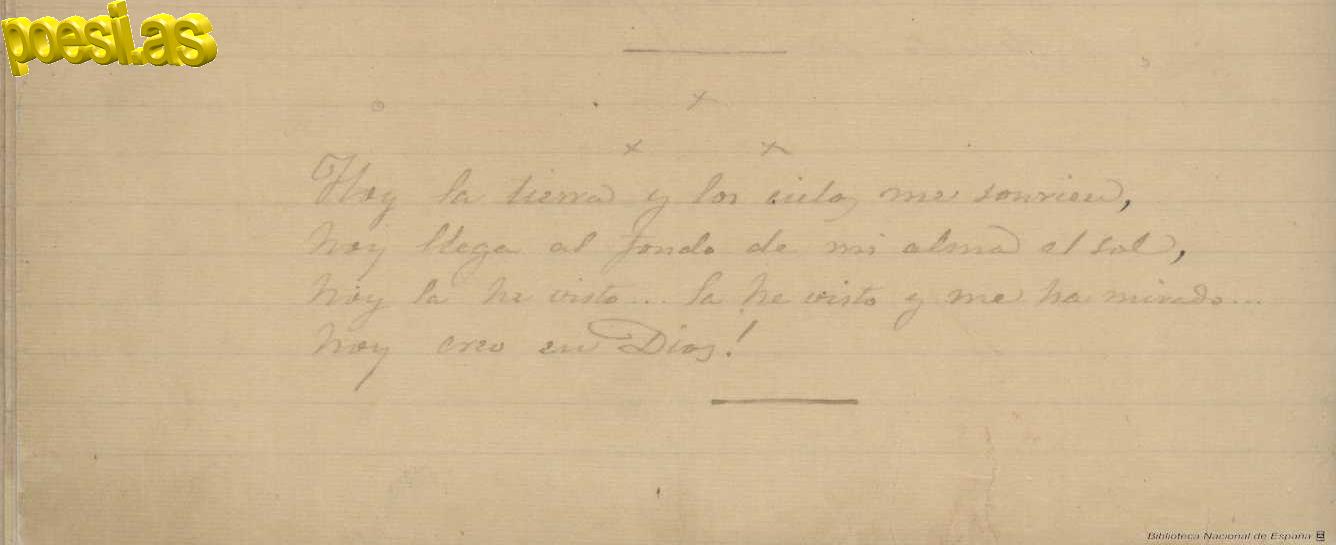 poesi.as
Hoy la tierra y los cielos me sonrien,
hoy llega al fondo de mi alma el sol,
hoy la he visto... la he visto y me ha mirado...
hoy creo en Dios!
Biblioteca Nacional de España